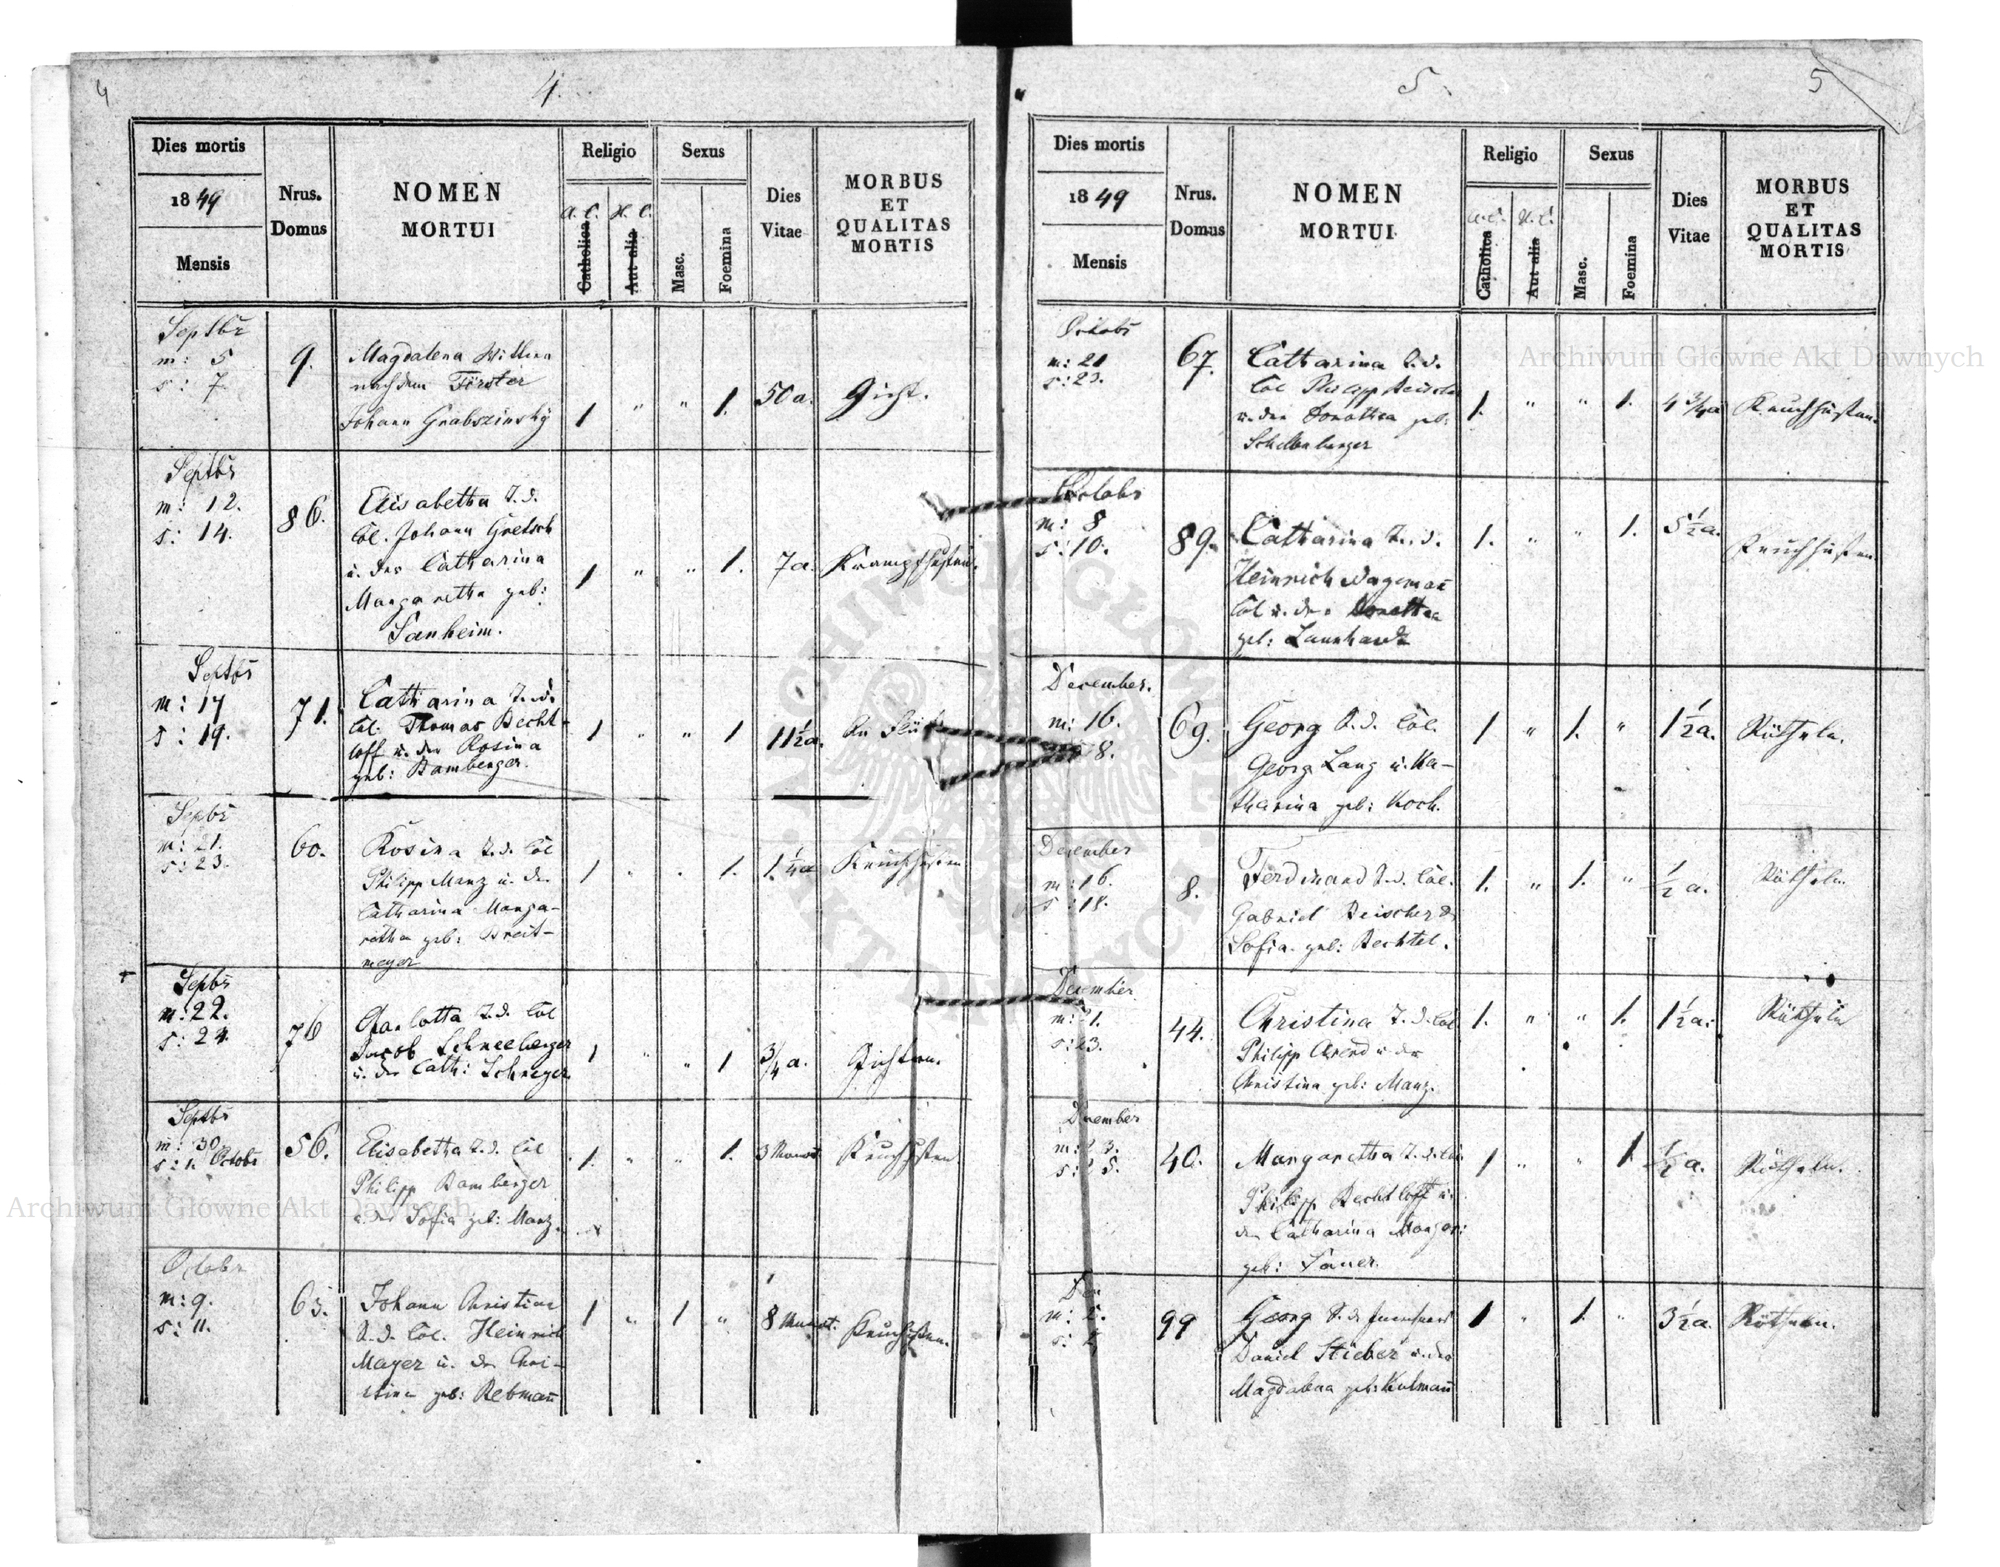 4
4.
Dies mortis
1849
Mensis
Nrus.
Domus
NOMEN
MORTUI
Religio
A. C.
H. C.
Catholica
Aut alia
Sexus
Masc.
Foemina
Dies
Vitae
MORBUS
ET
QUALITAS
MORTIS
Septbr
m: 5
s: 7.
9.
Magdalena
nach dem Förster
Johann Grabszinský
1 " " 1. 50 a. Gicht.
Septbr
m: 12.
s: 14.
86.
Elisabetha T. d.
Col. Johann Gretsch
u. der Catharina
Margaretha geb:
Sanheim.
1 " " 1. 7 a. Krampfhusten.
Septbr
m: 17
s: 19.
71.
Catharina T. d.
Col. Thomas Becht-
loff u. der Rosina
geb: Bamberger.
1 " " 1 11½ a.
Septbr
m: 21.
s: 23.
60.
Rosina T. d. Col
Philipp Manz u. der
Catharina Marga-
retha geb: Breit-
meyer
1 " " 1. 1¼ a Keuchhusten
Septbr
m: 22.
s: 24.
76
Charlotta T. d. Col
Jacob Schneeberger
u. der Cath: Schreyer
1 " " 1 ¾ a. Gichten.
Septbr
m: 30.
s: 1. Octobr
56.
Elisabetha T. d. Col
Philipp Bamberger
u. der Sofia geb: Manz.
1. " " 1. 3 Monat. Keuchhusten
Octobr
m: 9.
s: 11.
65.
Johann Christian
S. d. Col. Heinrich
Mayer u. der Chri-
stina geb: Rebmañ
1 " 1 " 8 Monat. Keuchhusten.
5.
5
Dies mortis
1849
Mensis
Nrus.
Domus
NOMEN
MORTUI
Religio
A. C.
H. C.
Catholica
Aut alia
Sexus
Masc.
Foemina
Dies
Vitae
MORBUS
ET
QUALITAS
MORTIS
Octobr
m: 21
s: 23.
67.
Catharina T. d.
Col Philipp
u. der Dorothea geb:
Schellenberger
1. " " 1. 4¾ a Keuchhusten.
Octobr
m: 8
s: 10.
89.
Catharina T. d.
Heinrich Wagemañ
Col u. der Dorothea
geb: Launhardt
1. " " 1. 5½ a. Keuchhusten.
December.
m: 16.
18.
69.
Georg S. d. Col.
Georg Lang u. Ka-
tharina geb: Koch.
1 " 1. " 1½ a. Rötheln.
December
m: 16.
s: 18.
8.
Ferdinand S. d. Col.
Gabriel Beischer &
Sofia geb: Bechtel.
1. " 1. " ½ a. Rötheln
December
m: 21.
s: 23.
44.
Christina T. d. Col
Philipp u. der
Christina geb: Manz.
1. " " 1. 1½ a: Rötheln
December
m: 23.
s: 25.
40.
Margaretha T. d. Col.
Philipp Bechtloff u.
der Catharina Margar:
geb: Sauer.
1 " " 1 ½ a. Rötheln.
Dec
m:
s:
99
Georg S. d.
Daniel Stieber u. der
Magdalena geb: Kulmañ
1 " 1. " 3½ a. Rötheln.
Archiwum Główne Akt Dawnych
Archiwum Główne Akt Dawnych
ARCHIWUM GŁÓWNE AKT DAWNYCH